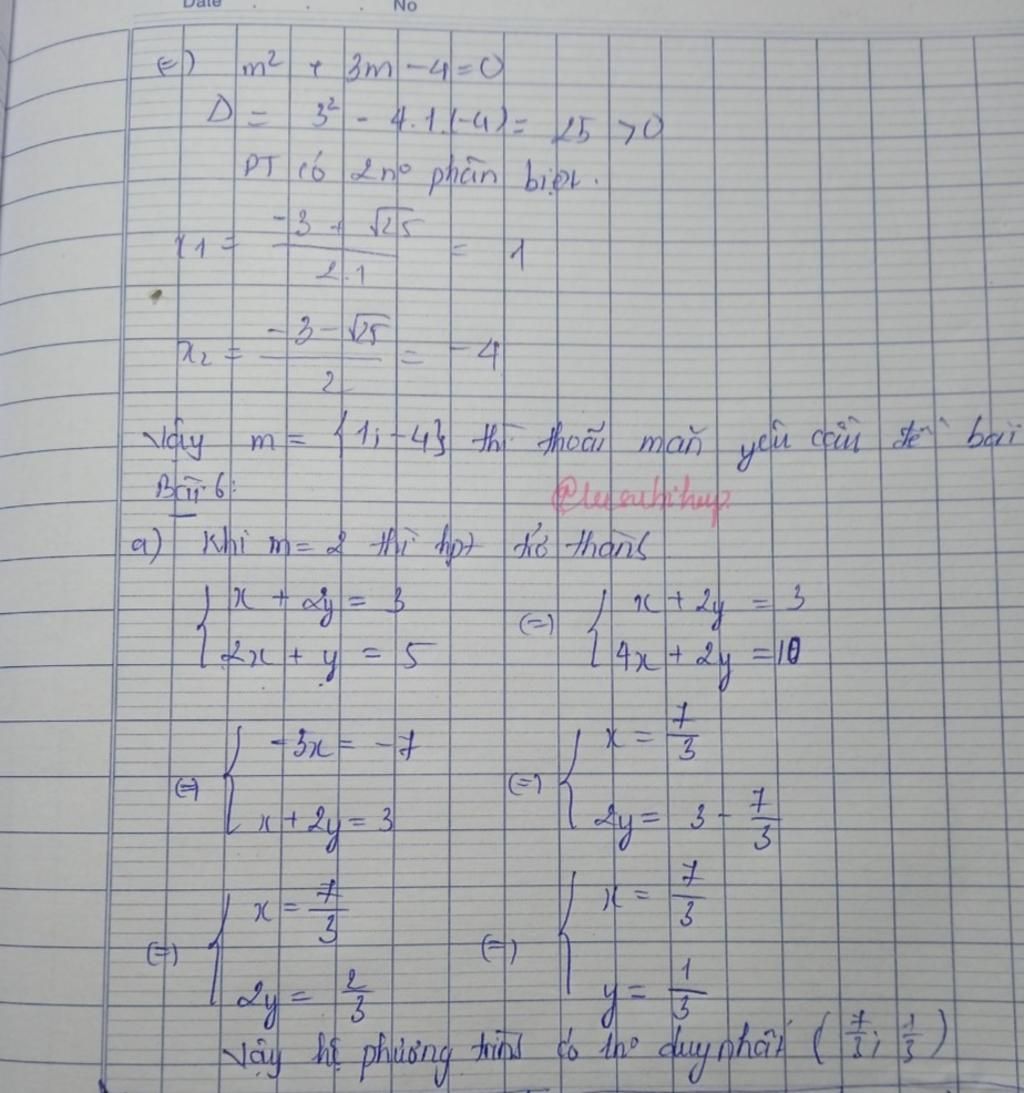 Date No
(=) m² + 3m - 4 = 0
Δ = 3² - 4.1.(-4) = 25 > 0
PT có 2 nº phân biệt.
x1 = (-3 + √25)/(2.1) = 1
x2 = (-3 - √25)/2 = -4
Vậy m = {1; -4} thì thoã mãn yêu cầu đề bài
Bài 6:
a) Khi m = 2 thì hpt trở thành
{ x + 2y = 3 (=) { x + 2y = 3
{ 2x + y = 5 { 4x + 2y = 10
(=) { -3x = -7 (=) { x = 7/3
{ x + 2y = 3 { 2y = 3 - 7/3
(=) { x = 7/3 (=) { x = 7/3
{ 2y = 2/3 { y = 1/3
Vậy hệ phương trình có 1nº duy nhất (7/3; 1/3)